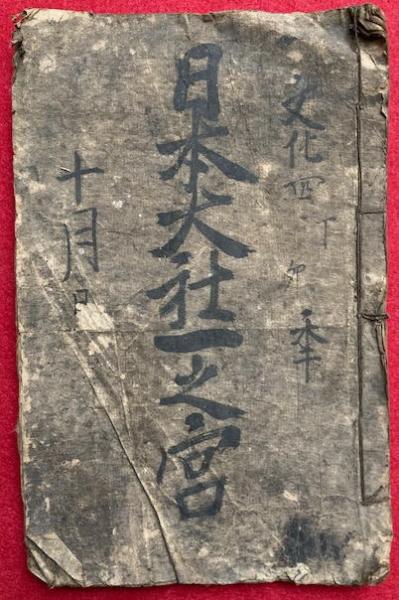 文化四丁卯年
日本大社一之宮
十月日